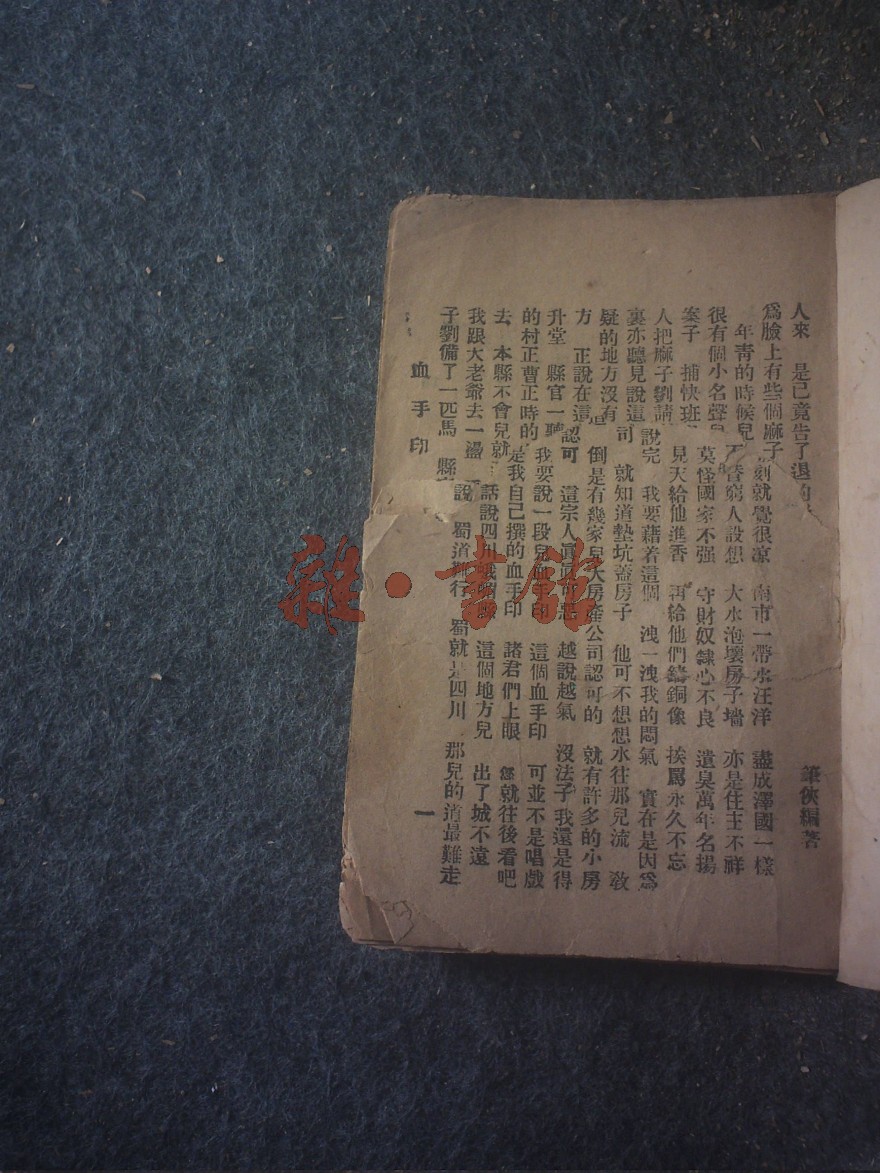 人來　是已竟告了退的
爲臉上有些個麻子
年青的時候兒
很有個小名聲
案子　捕快班
人把麻子劉請
裏亦聽見說這
疑的地方沒有
方　正說在這
升堂　縣官一聽
的村正曹正時的
去　本縣不會兒就
我跟大老爺去一盪
子劉備了一匹馬　縣
筆俠編著
刻就覺很凉　南市一帶水汪洋　盡成澤國一樣
替窮人設想　大水泡壞房子墻　亦是住主不祥
莫怪國家不强　守財奴隸心不良　遺臭萬年名揚
見天給他進香　再給他們鑄銅像　挨罵永久不忘
說完　我要藉着這個　洩一洩我的悶氣　實在是因爲
司　就知道墊坑蓋房子　他可不想想水往那兒流　敎
倒是有幾家兒大房產公司認可的　就有許多的小房
認可　這宗人眞眞可惡　越說越氣　沒法子我還是得
我要說一段兒血手印　這個血手印　可並不是唱戲
是我自己撰的血手印　諸君們上眼　您就往後看吧
話說四川峨嵋縣　這個地方兒　出了城不遠
說　蜀道難行　蜀就是四川　那兒的道最難走
血手印　一
雜·書館